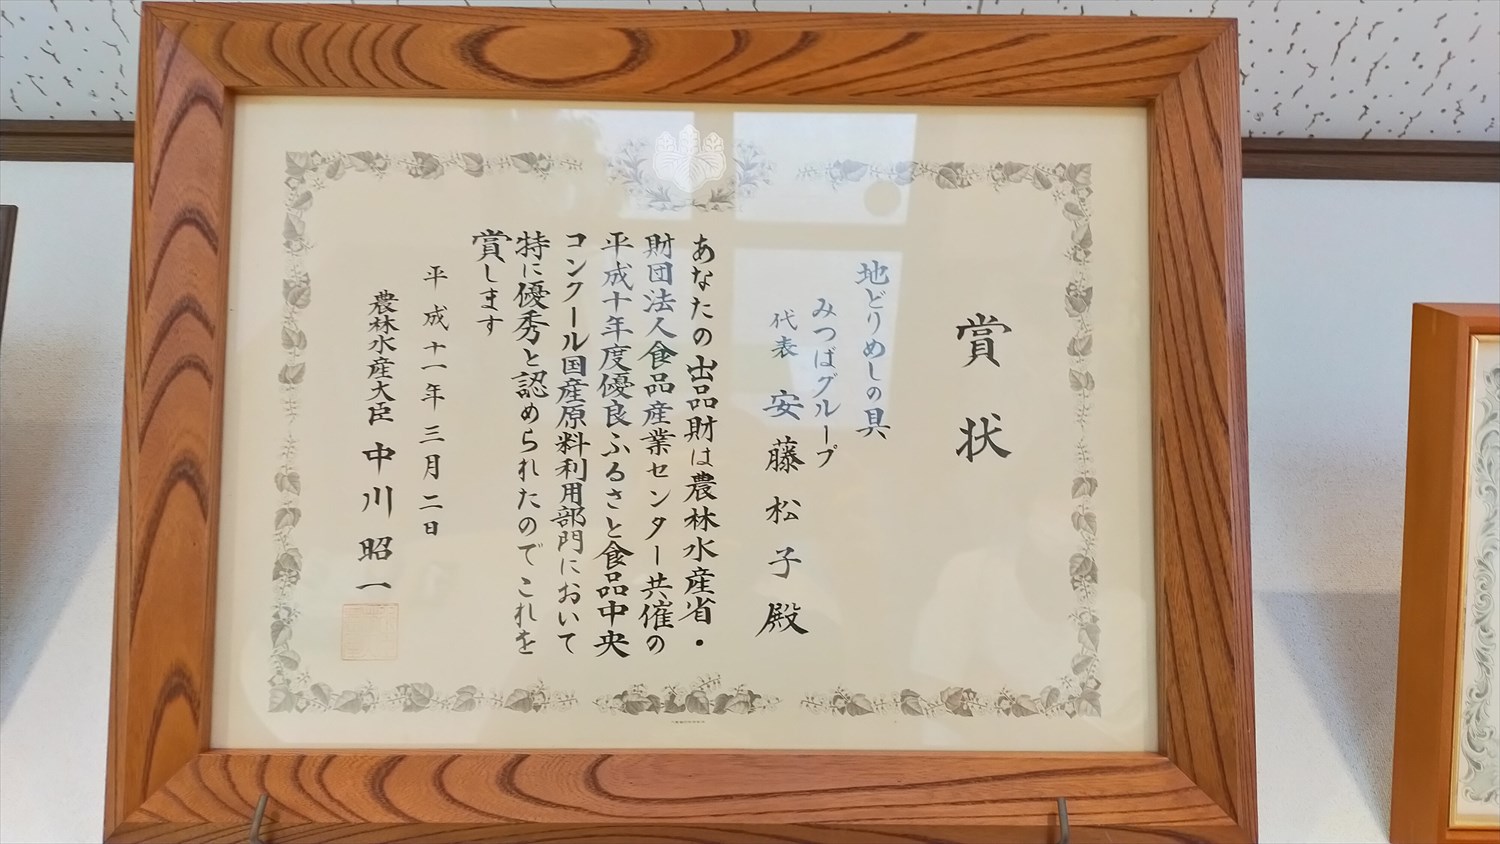 賞状
地どりめしの具
みつばグループ
代表 安藤松子殿
あなたの出品財は農林水産省・
財団法人食品産業センター共催の
平成十年度優良ふるさと食品中央
コンクール国産原料利用部門において
特に優秀と認められたのでこれを
賞します
平成十一年三月二日
農林水産大臣 中川昭一